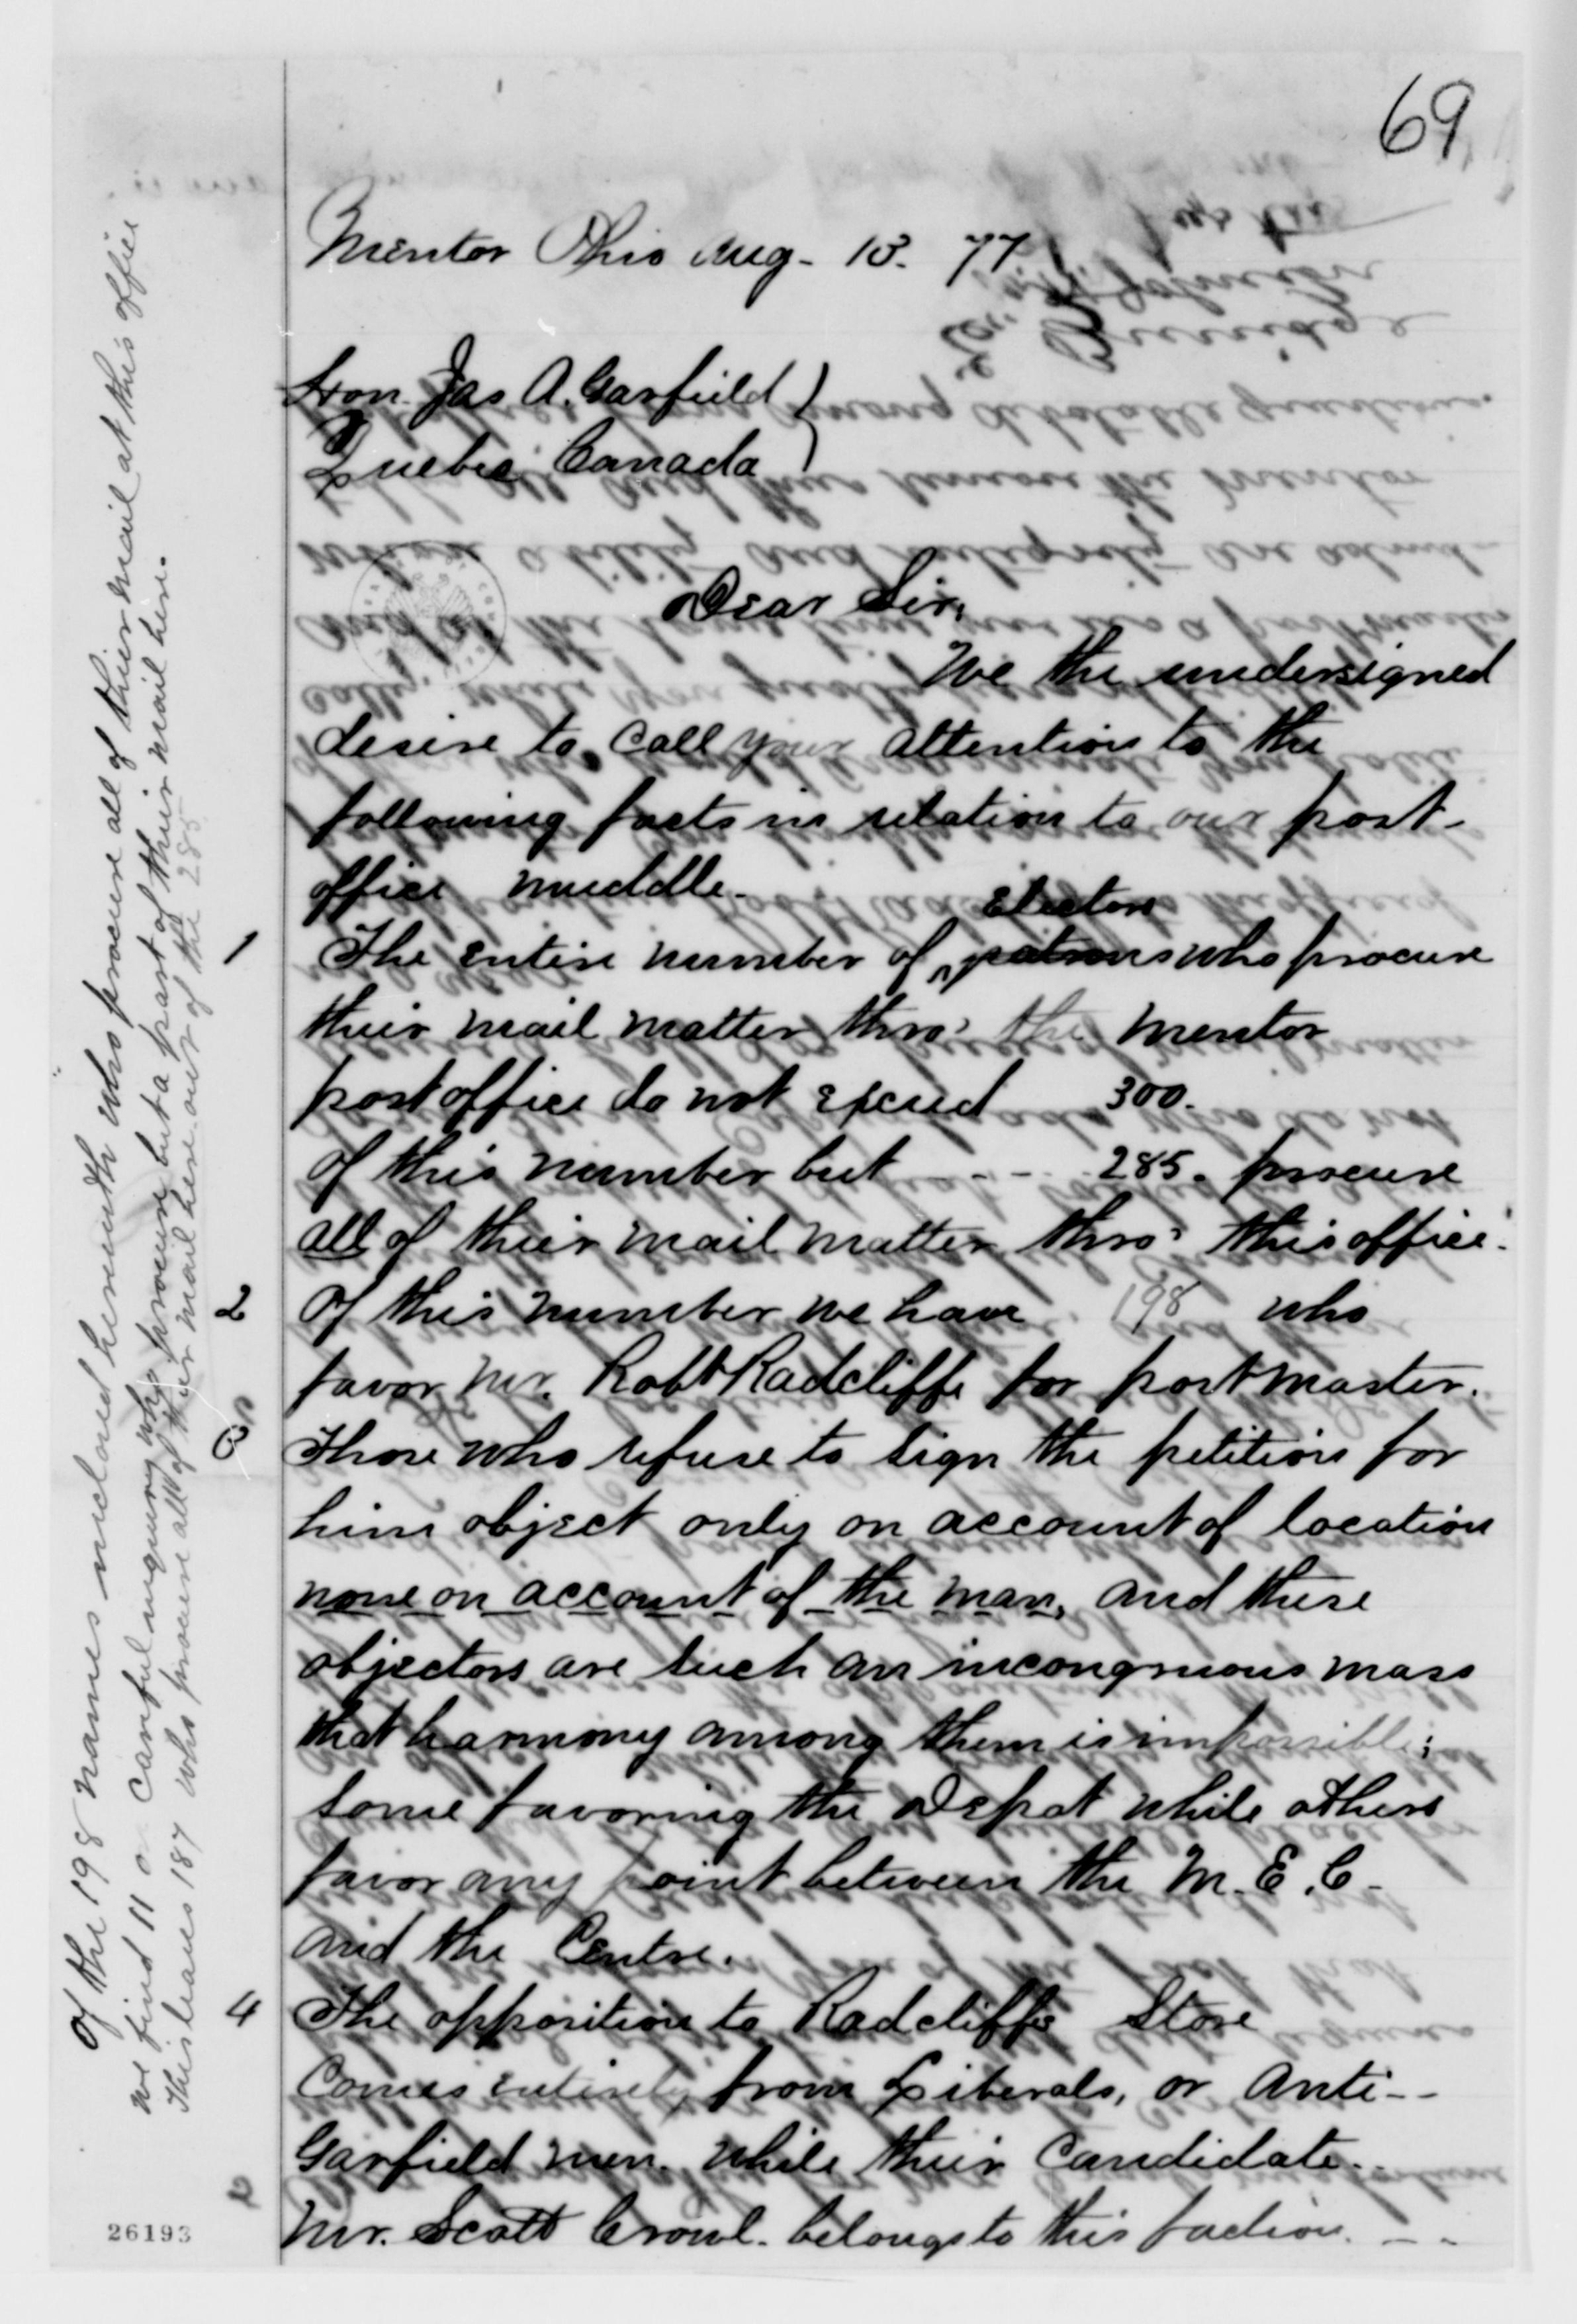 69
Mentor Ohio Aug- 13. 77
Hon. Jas A. Garfield
Quebec Canada
Dear Sir,
We the undersigned
desire to call your attention to the
following facts in relation to our post-
office muddle.
Electors
1 The entire number of patrons who procure
their mail matter thro' the Mentor
post office do not exceed 300.
of this number but - - - 285. procure
all of their mail matter thro' this office.
2 Of this number we have 198 who
favor Mr. Robt Radcliffe for postmaster.
3 Those who refuse to sign the petition for
him object only on account of location
none on account of the man, and these
objectors are such an incongruous mass
that harmony among them is impossible;
some favoring the Depot while others
favor any point between the M. E. C-
and the Centre.
4 The opposition to Radcliffe Store
Comes entirely from Liberals, or Anti--
Garfield men. while their Candidate-
Mr. Scott Crowl- belongs to this faction. - -
Of the 198 names inclosed herewith who procure all of their mail at this office
we find 11 on careful inquiry who procure but a part of their mail here.
This leaves 187 who procure all of their mail here out of the 285
26193